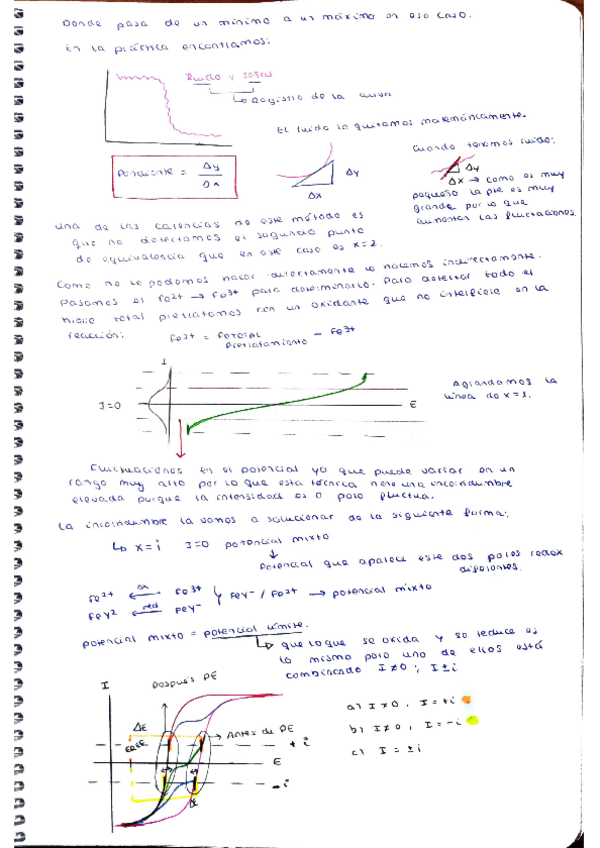 Donde pasa de un mínimo a un máximo en ese caso.
En la práctica encontramos:
Ruido y saltos
↳ Registro de la curva
El ruido lo quitamos matemáticamente.
Cuando tenemos ruido:
Pendiente = Δy / Δx
Δy
Δx
Δy
Δx → como es muy
pequeño la pte es muy
grande por lo que
aumentan las fluctuaciones.
Una de las carencias de este método es
que no detectamos el segundo punto
de equivalencia que en este caso es x=2.
Como no lo podemos hacer directamente lo hacemos indirectamente.
Pasamos el Fe2+ → Fe3+ para determinarlo. Para detectar todo el
hierro total pretratamos con un oxidante que no interfiere en la
reacción:
Fe2+ = Fe total pretratamiento - Fe3+
I
I=0
E
Agrandamos la
línea de x=1.
Fluctuaciones en el potencial ya que puede variar en un
rango muy alto por lo que esta técnica tiene una incertidumbre
elevada porque la intensidad es 0 pero fluctua.
La incertidumbre la vamos a solucionar de la siguiente forma:
↳ x=i I=0 potencial mixto
↓
Potencial que aparece entre dos pares redox
diferentes.
Fe2+ ← ox Fe3+
FeY2- ← red FeY-
FeY- / Fe2+ → potencial mixto
potencial mixto = potencial límite.
↳ que lo que se oxida y se reduce es
lo mismo pero uno de ellos está
combinando I≠0 ; I±i
I
Después PE
ΔE
→ Antes de PE
+i
E
-i
ΔE
a) I≠0, I=+i
b) I≠0, I=-i
c) I=±i